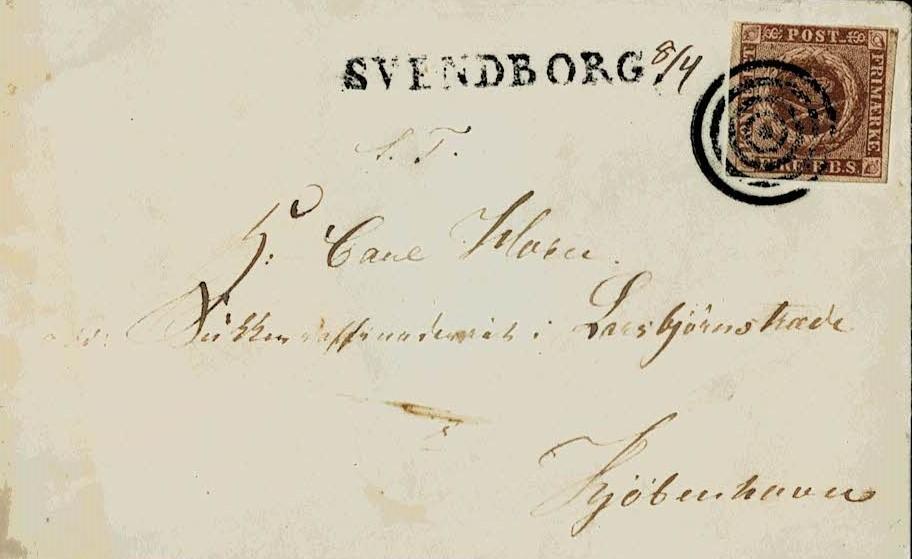 SVENDBORG 8/4
POST
FRIMÆRKE
FIRE R.B.S.
S. T.
H: Carl Horn.
Sukkerraffinaderiet i Larsbjørnstræde
Kjøbenhavn